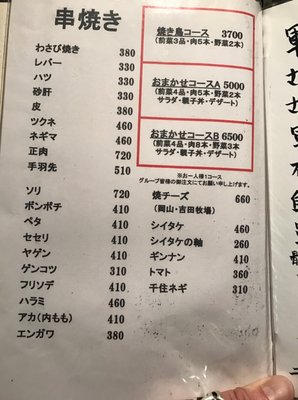 串焼き
わさび焼き 380
レバー 330
ハツ 330
砂肝 380
皮 380
ツクネ 460
ネギマ 460
正肉 720
手羽先 510
ソリ 720
ボンボチ 410
ペタ 410
セセリ 410
ヤゲン 410
ゲンコツ 310
フリソデ 410
ハラミ 460
アカ(内もも) 410
エンガワ 380
焼き鳥コース 3700
(前菜3品・肉5本・野菜2本)
おまかせコースA 5000
(前菜4品・肉5本・野菜2本
サラダ・親子丼・デザート)
おまかせコースB 6500
(前菜4品・肉8本・野菜3本
サラダ・親子丼・デザート)
※お一人様1コース
グループ皆様の御注文にてお願い申します。
焼チーズ 660
(岡山・吉田牧場)
シイタケ 460
シイタケの軸 260
ギンナン 410
トマト 360
千住ネギ 310